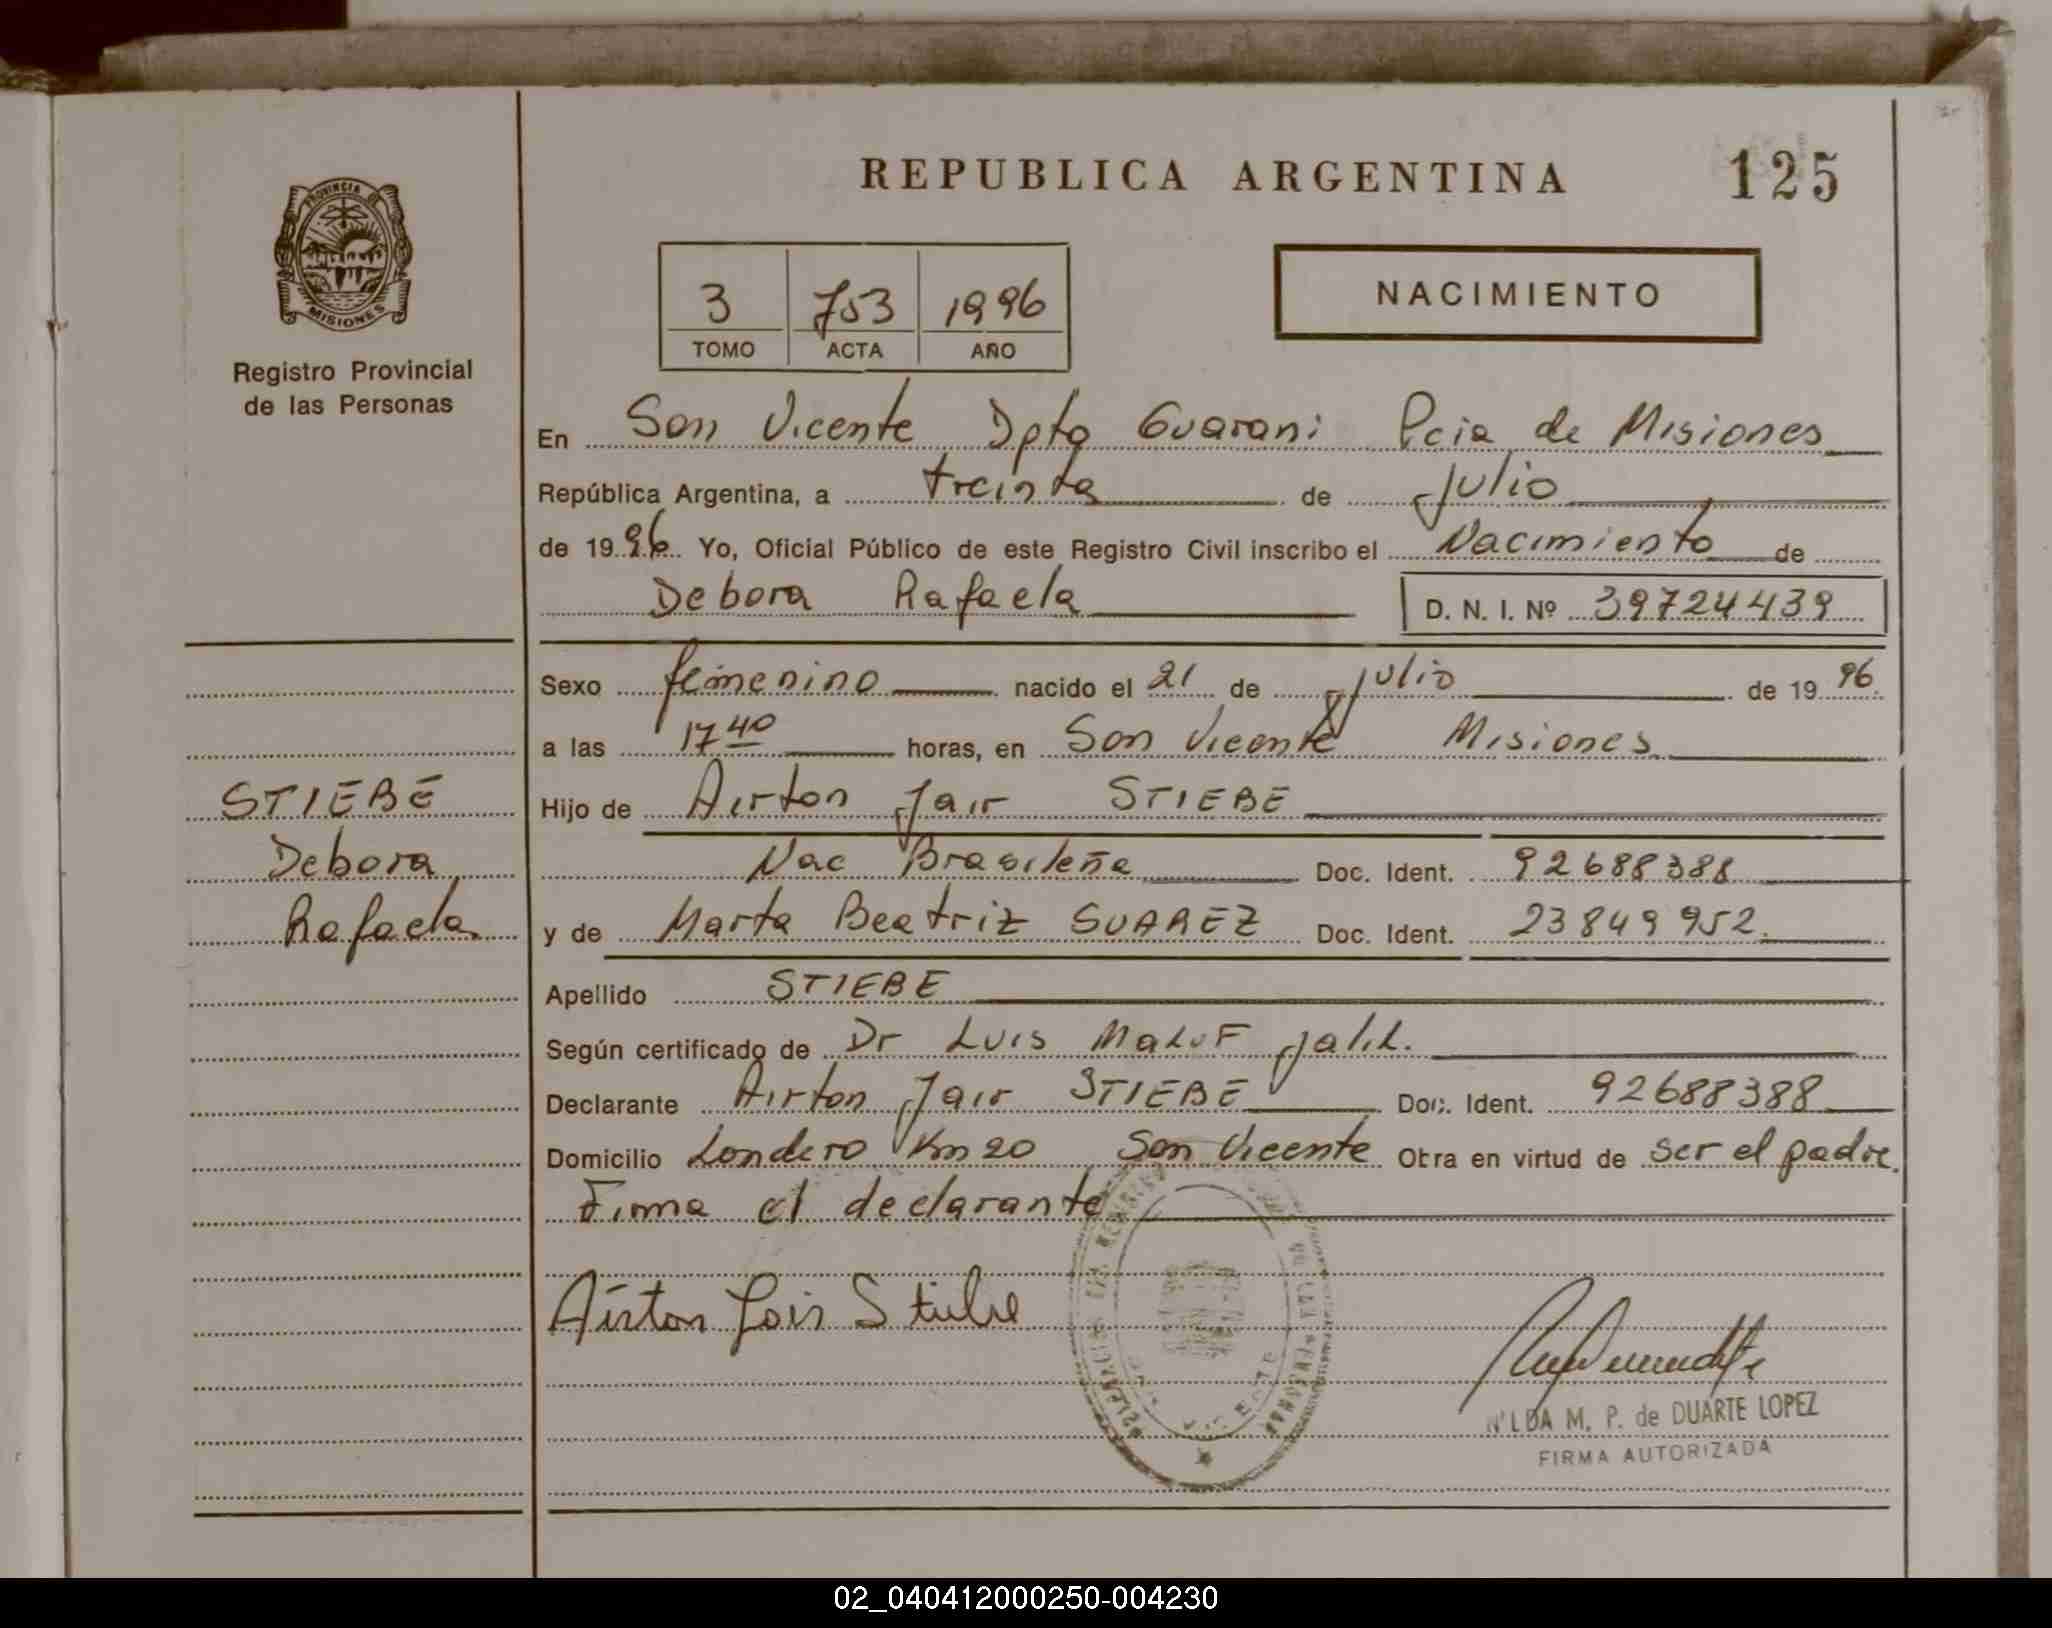 REPUBLICA ARGENTINA
125
PROVINCIA
MISIONES
Registro Provincial
de las Personas
3 753 1996
TOMO ACTA AÑO
NACIMIENTO
En San Vicente Dpto Guarani Pcia de Misiones
República Argentina, a treinta de julio
de 1996 Yo, Oficial Público de este Registro Civil inscribo el Nacimiento de
Debora Rafaela D. N. I. Nº 39724439
Sexo femenino nacido el 21 de julio de 1996
a las 17 40 horas, en San Vicente Misiones
STIEBE
Debora
Rafaela
Hijo de Airton Jair STIEBE
Nac Brasileña Doc. Ident. 92688388
y de Marta Beatriz SUAREZ Doc. Ident. 23849952
Apellido STIEBE
Según certificado de Dr Luis MaLuF Jalil.
Declarante Airton Jair STIEBE Doc. Ident. 92688388
Domicilio Londero Km 20 San Vicente Otra en virtud de ser el padre.
Firma el declarante
Airton Jair Stiebe
NILDA M. P. de DUARTE LOPEZ
FIRMA AUTORIZADA
02_040412000250-004230